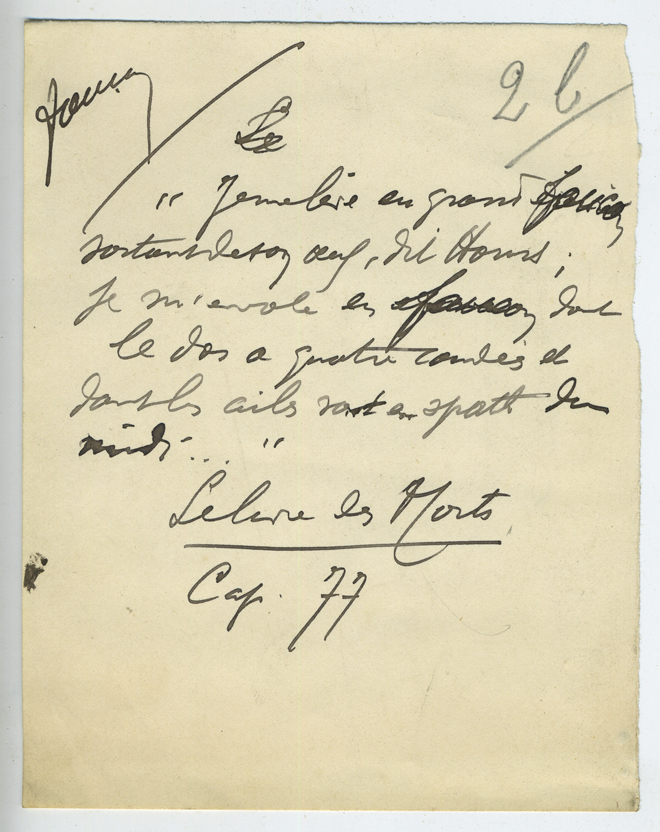 faucon
2 b
Le
" Je me lève en grand faucon
sortant de son œuf, dit Horus ;
Je m'envole en faucon dont
le dos a quatre coudées et
dont les ailes sont en spath du
midi... "
Le livre des Morts
Cap. 77